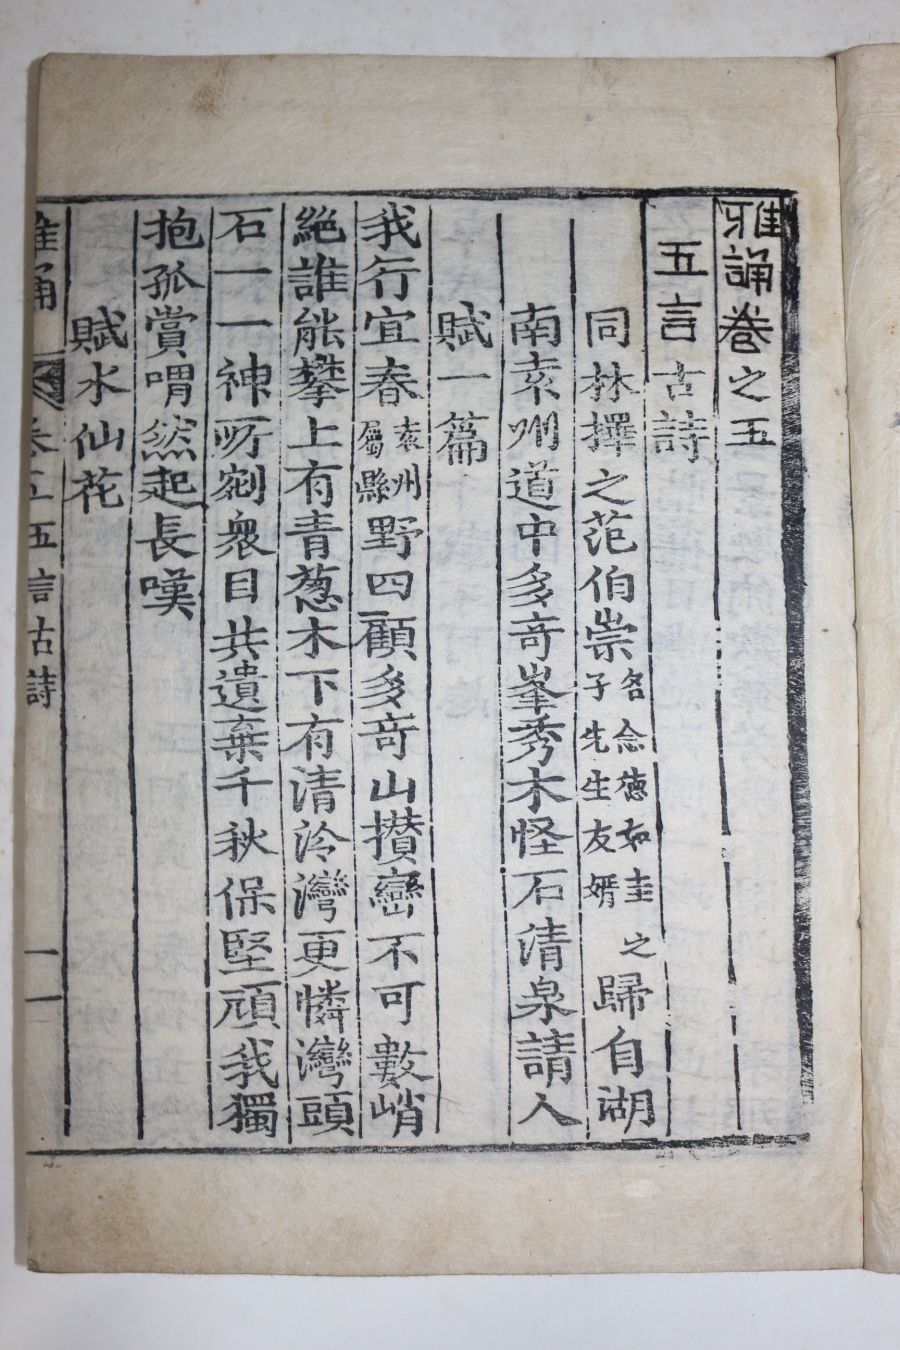 雅誦卷之五
五言古詩
同林擇之范伯崇名念德如圭之子先生友婿歸自湖
南袁州道中多奇峯秀木怪石清泉請人
賦一篇
我行宜春袁州屬縣野四顧多奇山攢巒不可數峭
絶誰能攀上有青葱木下有清泠灣更憐灣頭
石一一神所剜衆目共遺棄千秋保堅頑我獨
抱孤賞喟然起長嘆
賦水仙花
雅誦 卷之五 五言古詩 一